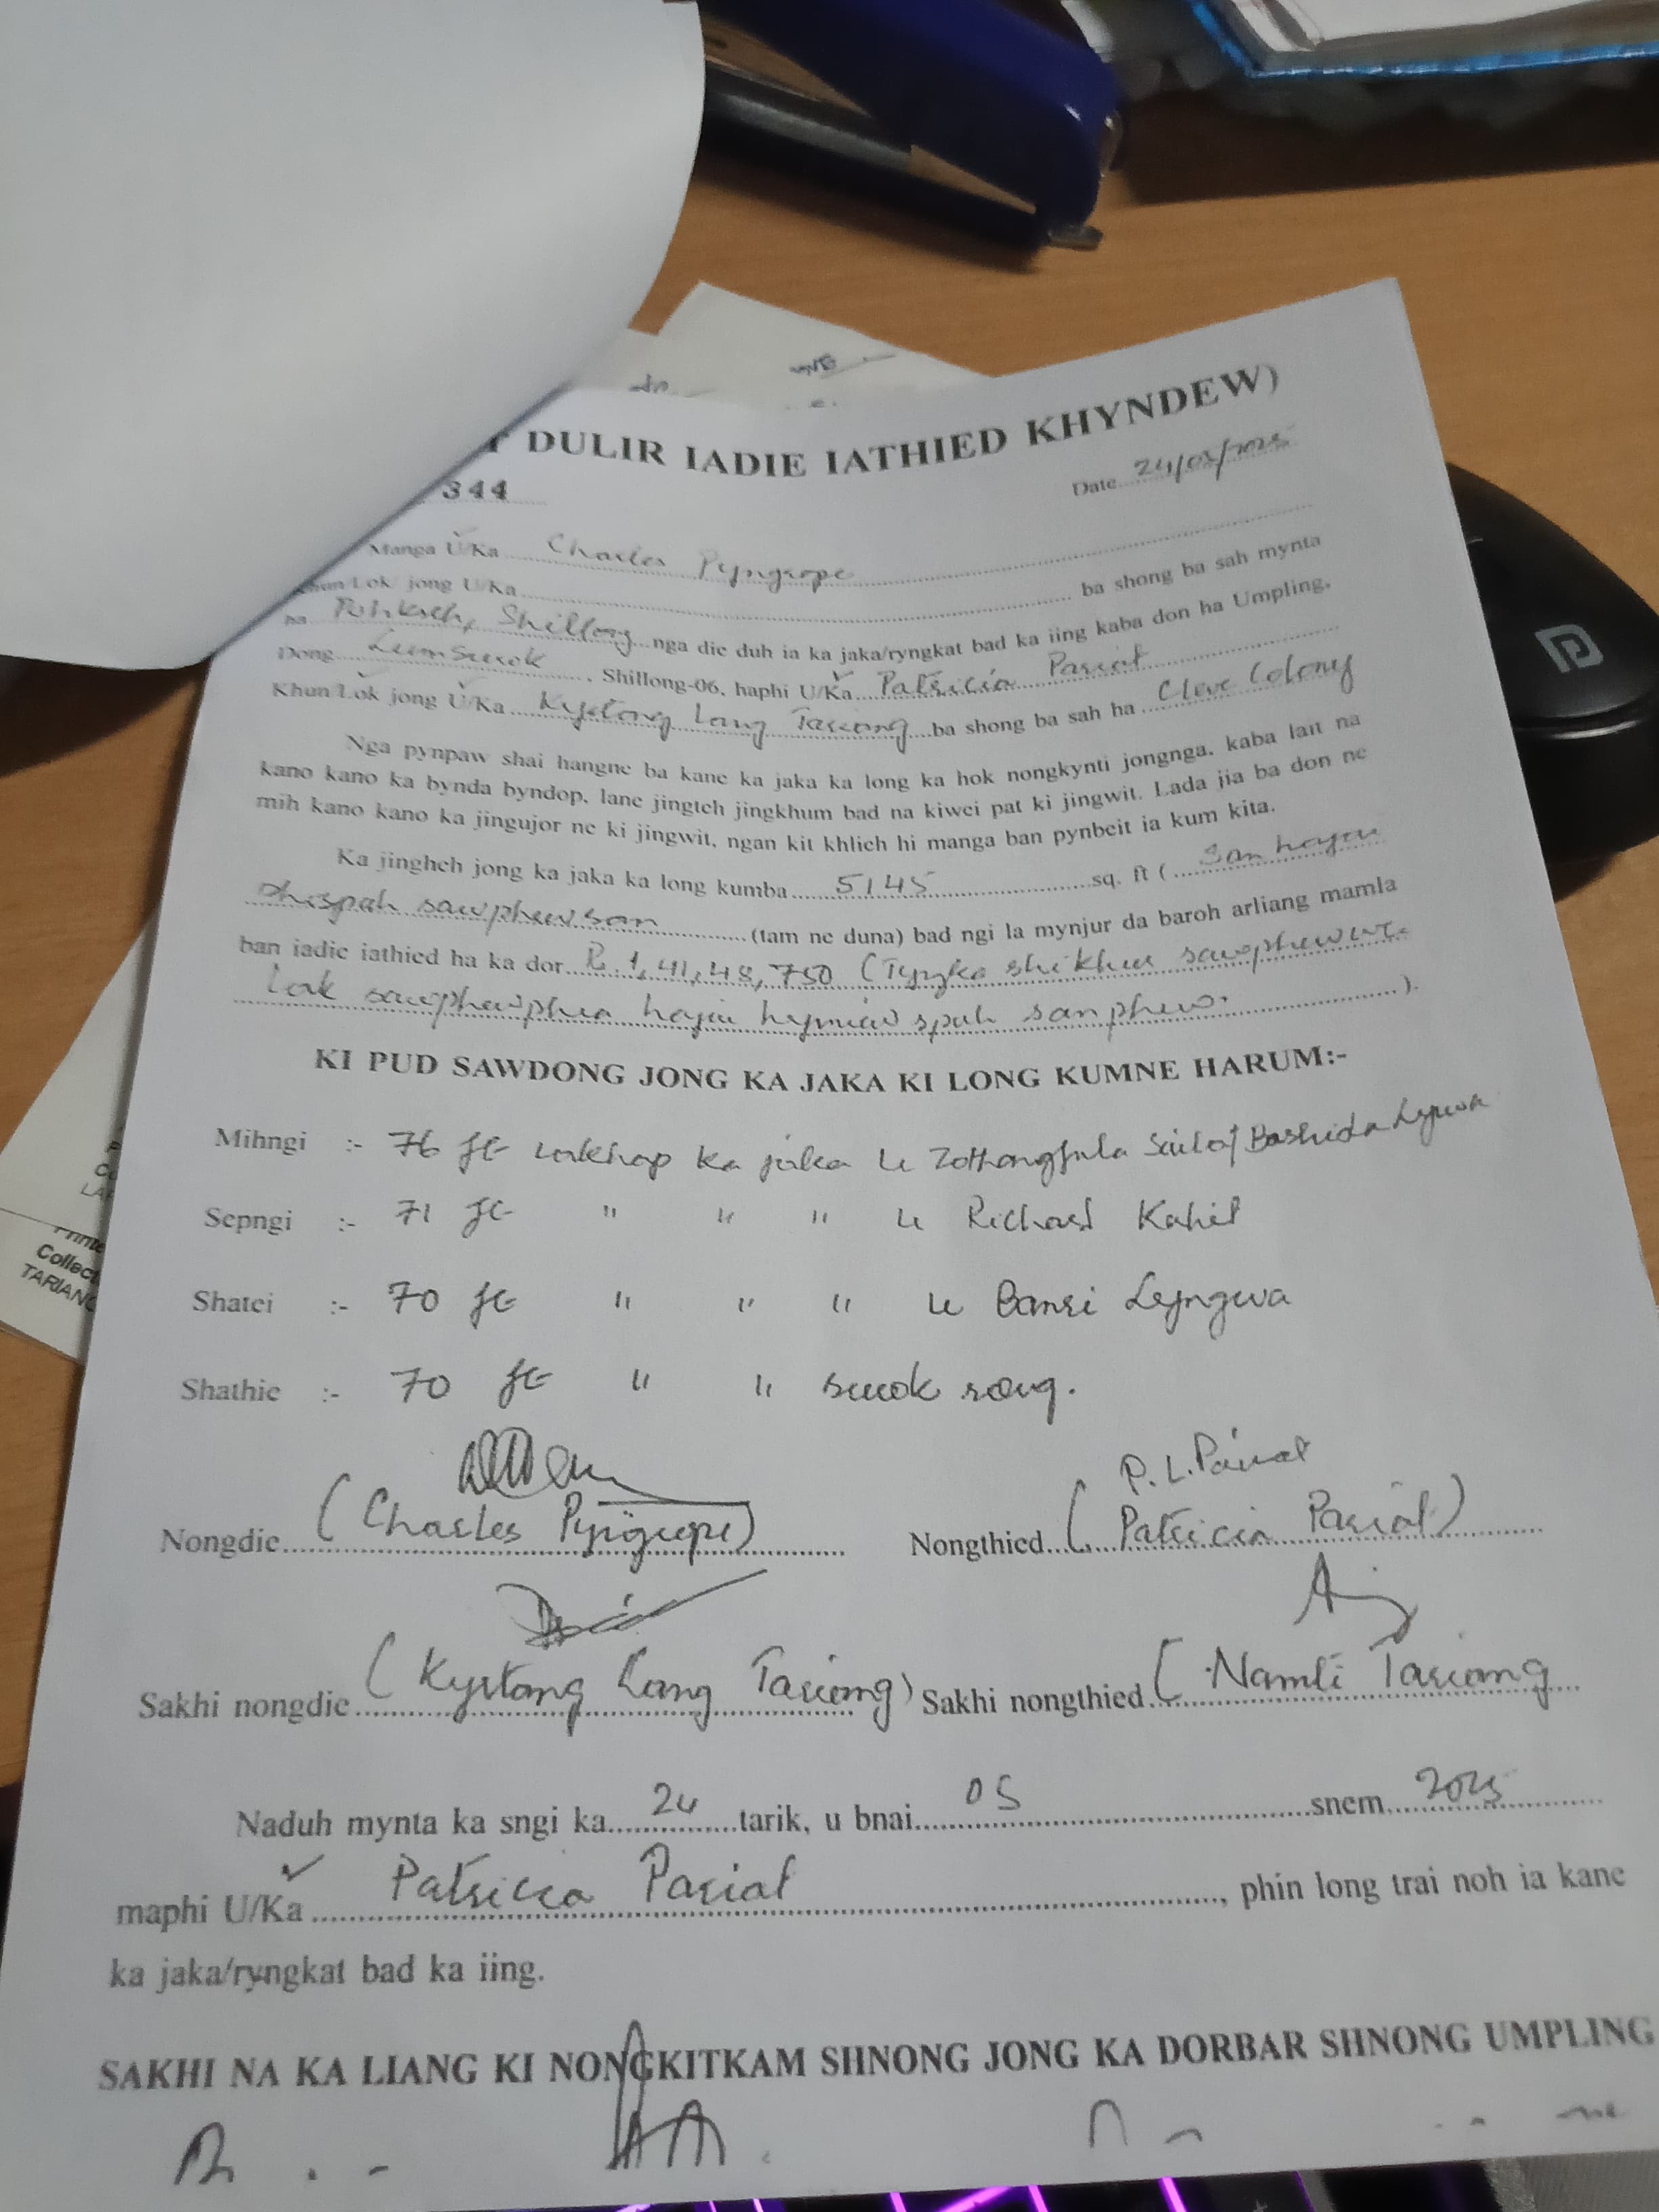 DULIR IADIE IATHIED KHYNDEW)
344
Date 24/05/2025
Manga U/Ka Charles Pyngrope
Khun/Lok/ jong U/Ka ba shong ba sah mynta
ha Pohkseh, Shillong nga die duh ia ka jaka/ryngkat bad ka iing kaba don ha Umpling,
Dong Lumswok, Shillong-06, haphi U/Ka Patricia Pariat
Khun/Lok jong U/Ka Kyrtong Lang Tariang ba shong ba sah ha Cleve Colony
Nga pynpaw shai hangne ba kane ka jaka ka long ka hok nongkynti jongnga, kaba lait na
kano kano ka bynda byndop, lane jingteh jingkhum bad na kiwei pat ki jingwit. Lada jia ba don ne
mih kano kano ka jingujor ne ki jingwit, ngan kit khlieh hi manga ban pynbeit ia kum kita.
Ka jingheh jong ka jaka ka long kumba 5145 sq. ft ( San hajar
shispah sawphewsan (tam ne duna) bad ngi la mynjur da baroh arliang mamla
ban iadie iathied ha ka dor Rs 1,41,48,750 (Tyngka shi khlur sawphewwei
Lak sawphewphra hajar hynniew spah sanphew. ).
KI PUD SAWDONG JONG KA JAKA KI LONG KUMNE HARUM:-
Mihngi :- 76 ft iakhap ka jaka u Zothangfula Bashida Lyngwa
Sepngi :- 71 ft " " " u Richard Kahit
Shatei :- 70 ft " " " u Bansi Lyngwa
Shathie :- 70 ft " " surok
P. L. Pariat
Nongdie (Charles Pyngrope) Nongthied (Patricia Pariat)
Sakhi nongdie (Kyrtong Lang Tariang) Sakhi nongthied (Namti Tariang
Naduh mynta ka sngi ka 24 tarik, u bnai 05 snem 2025
maphi U/Ka Patricia Pariat, phin long trai noh ia kane
ka jaka/ryngkat bad ka iing.
SAKHI NA KA LIANG KI NONGKITKAM SHNONG JONG KA DORBAR SHNONG UMPLING
Collect
TARIANG